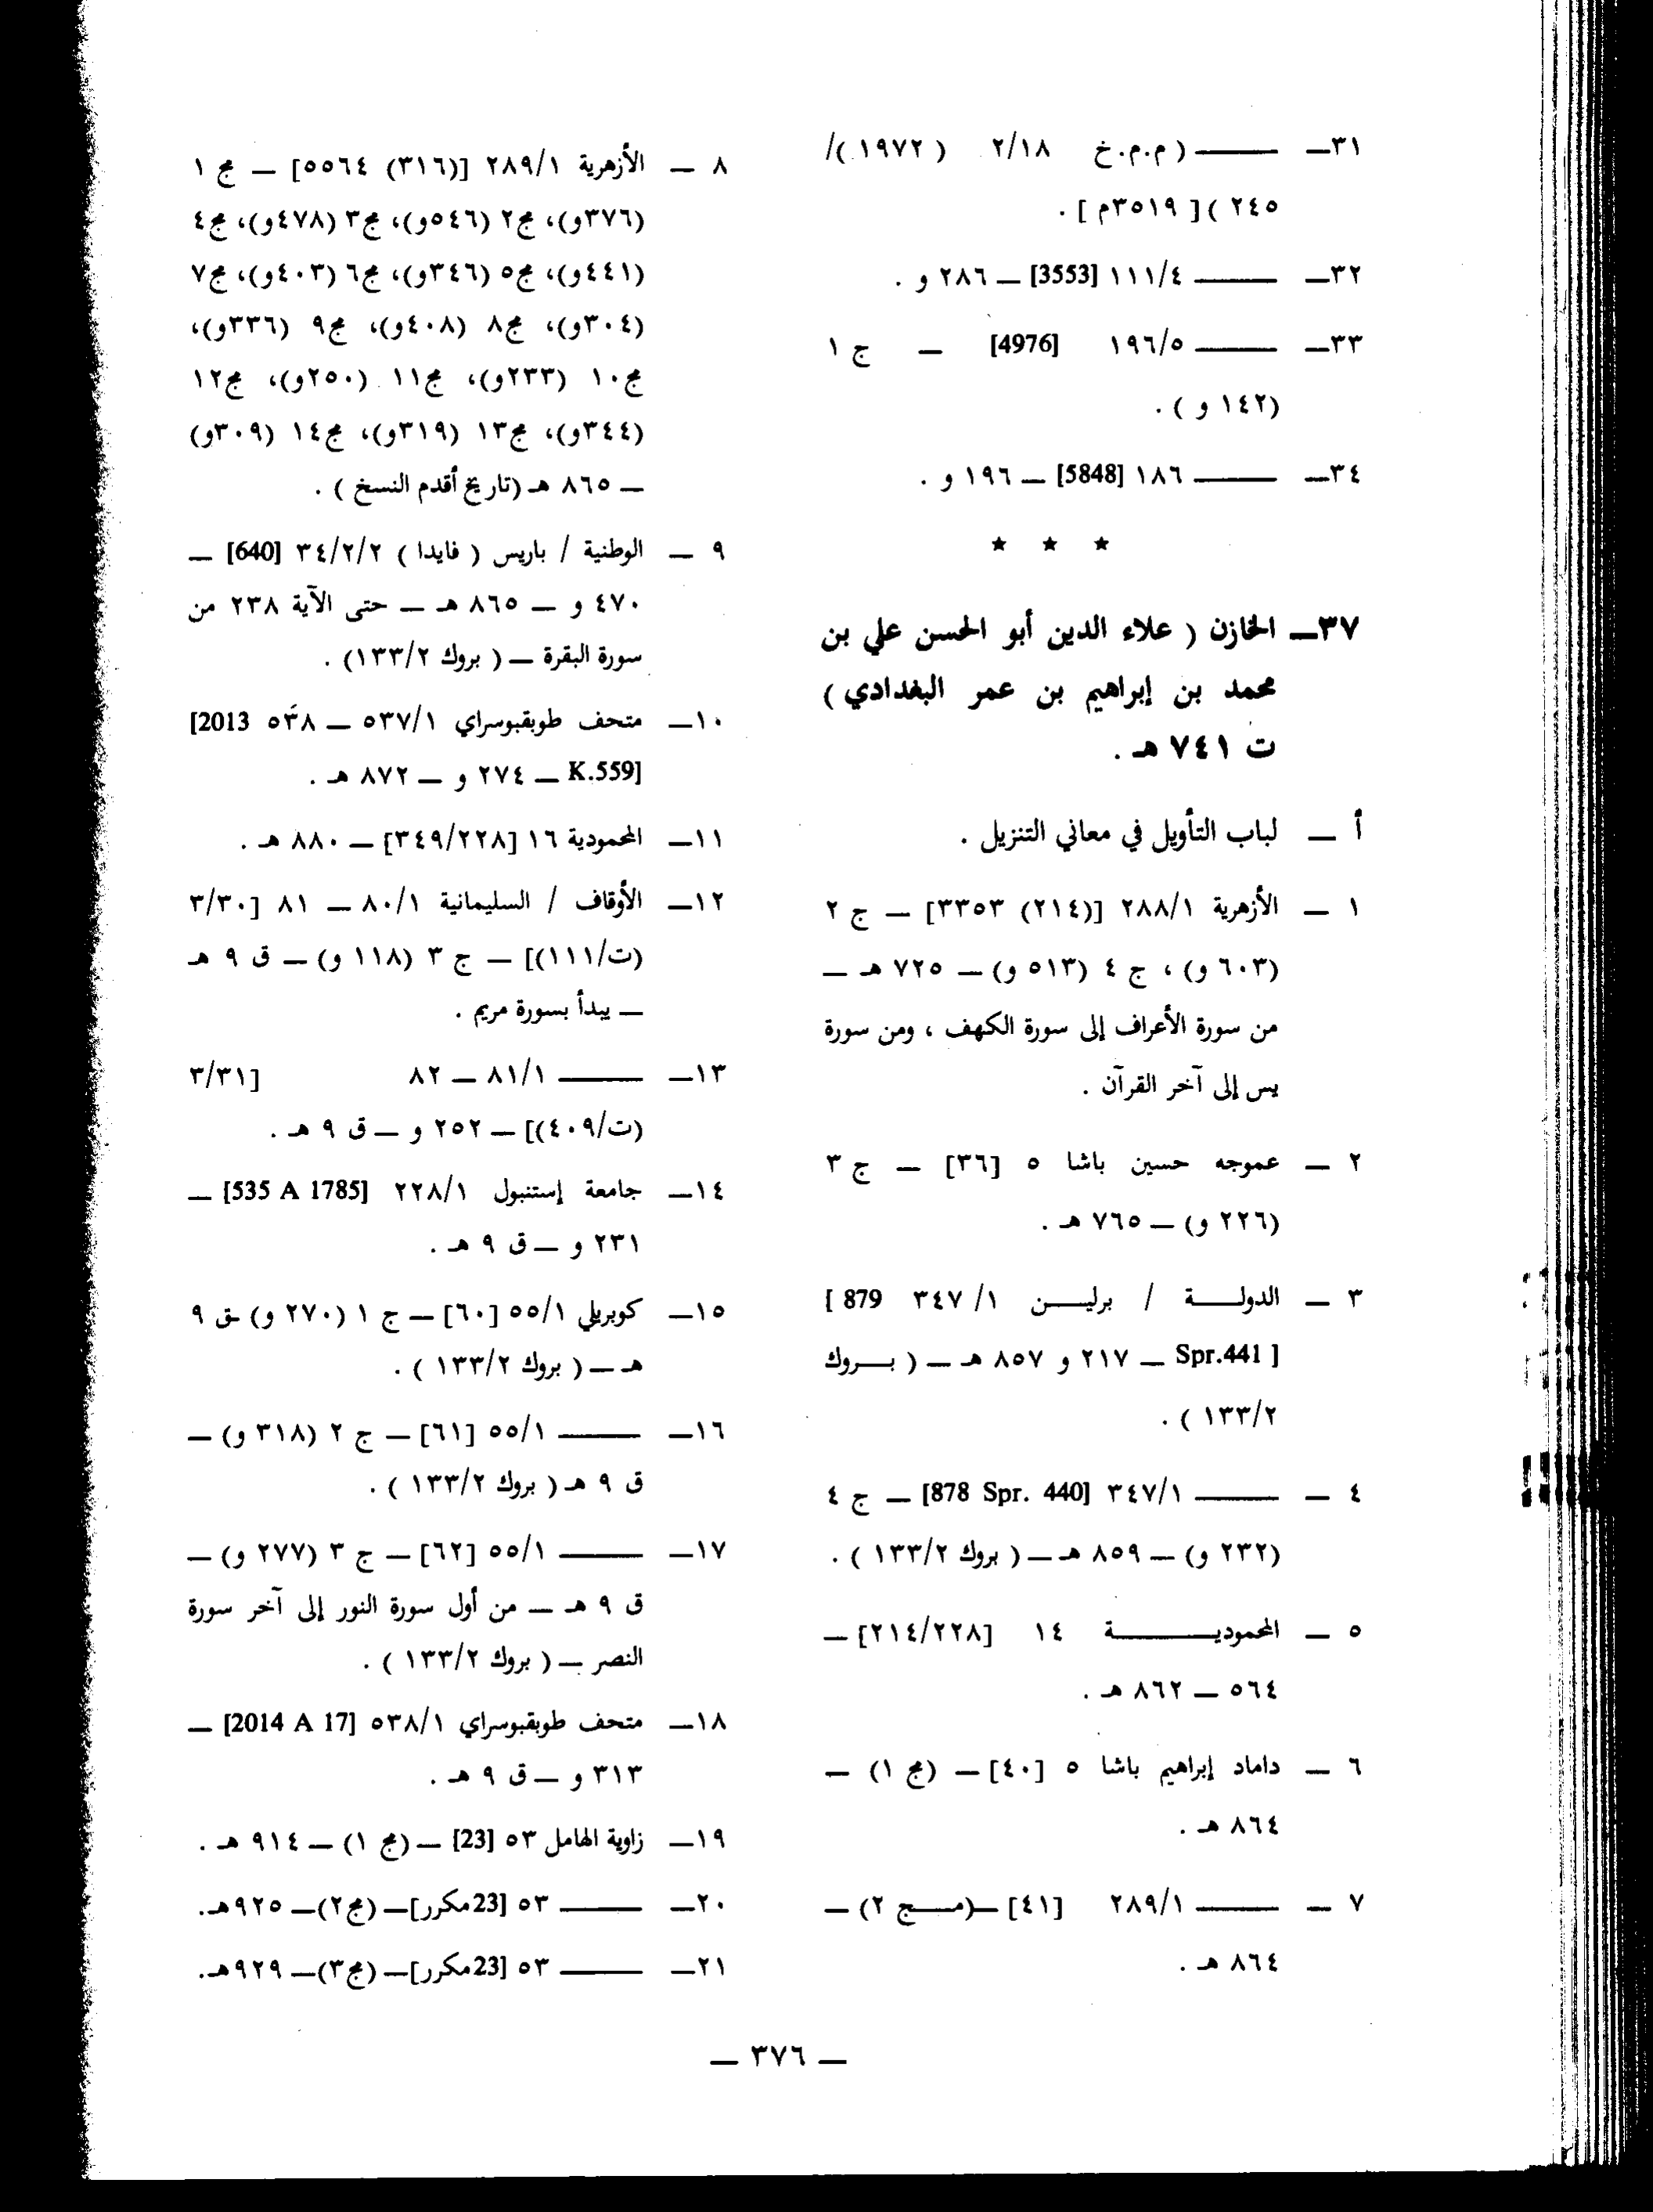 ٣١ــ ـــــــ ( م.م.خ ٢/١٨ ( ١٩٧٢ )/
٢٤٥ )[ ٣٥١٩م ] .
٣٢ــ ـــــــ ١١١/٤ [3553] ــ ٢٨٦ و .
٣٣ــ ـــــــ ١٩٦/٥ [4976] ــ ج ١
(١٤٢ و ) .
٣٤ــ ـــــــ ١٨٦ [5848] ــ ١٩٦ و .
★ ★ ★
٣٧ــ الخازن ( علاء الدين أبو الحسن علي بن
محمد بن إبراهيم بن عمر البغدادي )
ت ٧٤١ هـ .
أ ــ لباب التأويل في معاني التنزيل .
١ ــ الأزهرية ٢٨٨/١ [(٢١٤) ٣٣٥٣] ــ ج ٢
(٦٠٣ و) ، ج ٤ (٥١٣ و) ــ ٧٢٥ هـ ــ
من سورة الأعراف إلى سورة الكهف ، ومن سورة
يس إلى آخر القرآن .
٢ ــ عموجه حسين باشا ٥ [٣٦] ــ ج ٣
(٢٢٦ و) ــ ٧٦٥ هـ .
٣ ــ الدولـــــة / برليـــن ١/ ٣٤٧ [ 879
Spr.441 ] ــ ٢١٧ و ٨٥٧ هـ ــ ( بـــروك
١٣٣/٢ ) .
٤ ــ ـــــــ ٣٤٧/١ [878 Spr. 440] ــ ج ٤
(٢٣٢ و) ــ ٨٥٩ هـ ــ ( بروك ١٣٣/٢ ) .
٥ ــ المحموديــــــــة ١٤ [٢١٤/٢٢٨] ــ
٥٦٤ ــ ٨٦٢ هـ .
٦ ــ داماد إبراهيم باشا ٥ [٤٠] ــ (مج ١) ــ
٨٦٤ هـ .
٧ ــ ـــــــ ٢٨٩/١ [٤١] ــ(مـــج ٢) ــ
٨٦٤ هـ .
٨ ــ الأزهرية ٢٨٩/١ [(٣١٦) ٥٥٦٤] ــ مج ١
(٣٧٦و)، مج٢ (٥٤٦و)، مج٣ (٤٧٨و)، مج٤
(٤٤١و)، مج٥ (٣٤٦و)، مج٦ (٤٠٣و)، مج٧
(٣٠٤و)، مج٨ (٤٠٨و)، مج٩ (٣٣٦و)،
مج١٠ (٢٣٣و)، مج١١ (٢٥٠و)، مج١٢
(٣٤٤و)، مج١٣ (٣١٩و)، مج١٤ (٣٠٩و)
ــ ٨٦٥ هـ (تاريخ أقدم النسخ ) .
٩ ــ الوطنية / باريس ( فايدا ) ٣٤/٢/٢ [640] ــ
٤٧٠ و ــ ٨٦٥ هـ ــ حتى الآية ٢٣٨ من
سورة البقرة ــ ( بروك ١٣٣/٢) .
١٠ــ متحف طوبقبوسراي ٥٣٧/١ ــ ٥٣٨ [2013
K.559] ــ ٢٧٤ و ــ ٨٧٢ هـ .
١١ــ المحمودية ١٦ [٣٤٩/٢٢٨] ــ ٨٨٠ هـ .
١٢ــ الأوقاف / السليمانية ٨٠/١ ــ ٨١ [٣/٣٠
(ت/١١١)] ــ ج ٣ (١١٨ و) ــ ق ٩ هـ
ــ يبدأ بسورة مريم .
١٣ــ ـــــــ ٨١/١ ــ ٨٢ [٣/٣١
(ت/٤٠٩)] ــ ٢٥٢ و ــ ق ٩ هـ .
١٤ــ جامعة إستنبول ٢٢٨/١ [535 A 1785] ــ
٢٣١ و ــ ق ٩ هـ .
١٥ــ كوبريلي ٥٥/١ [٦٠] ــ ج ١ (٢٧٠ و) ـق ٩
هـ ــ ( بروك ١٣٣/٢ ) .
١٦ــ ـــــــ ٥٥/١ [٦١] ــ ج ٢ (٣١٨ و) ــ
ق ٩ هـ ( بروك ١٣٣/٢ ) .
١٧ــ ـــــــ ٥٥/١ [٦٢] ــ ج ٣ (٢٧٧ و) ــ
ق ٩ هـ ــ من أول سورة النور إلى آخر سورة
النصر ــ ( بروك ١٣٣/٢ ) .
١٨ــ متحف طوبقبوسراي ٥٣٨/١ [2014 A 17] ــ
٣١٣ و ــ ق ٩ هـ .
١٩ــ زاوية الهامل ٥٣ [23] ــ (مج ١) ــ ٩١٤ هـ .
٢٠ــ ـــــــ ٥٣ [23مكرر]ــ (مج٢)ــ ٩٢٥هـ.
٢١ــ ـــــــ ٥٣ [23مكرر]ــ (مج٣)ــ ٩٢٩هـ.
ــ ٣٧٦ ــ